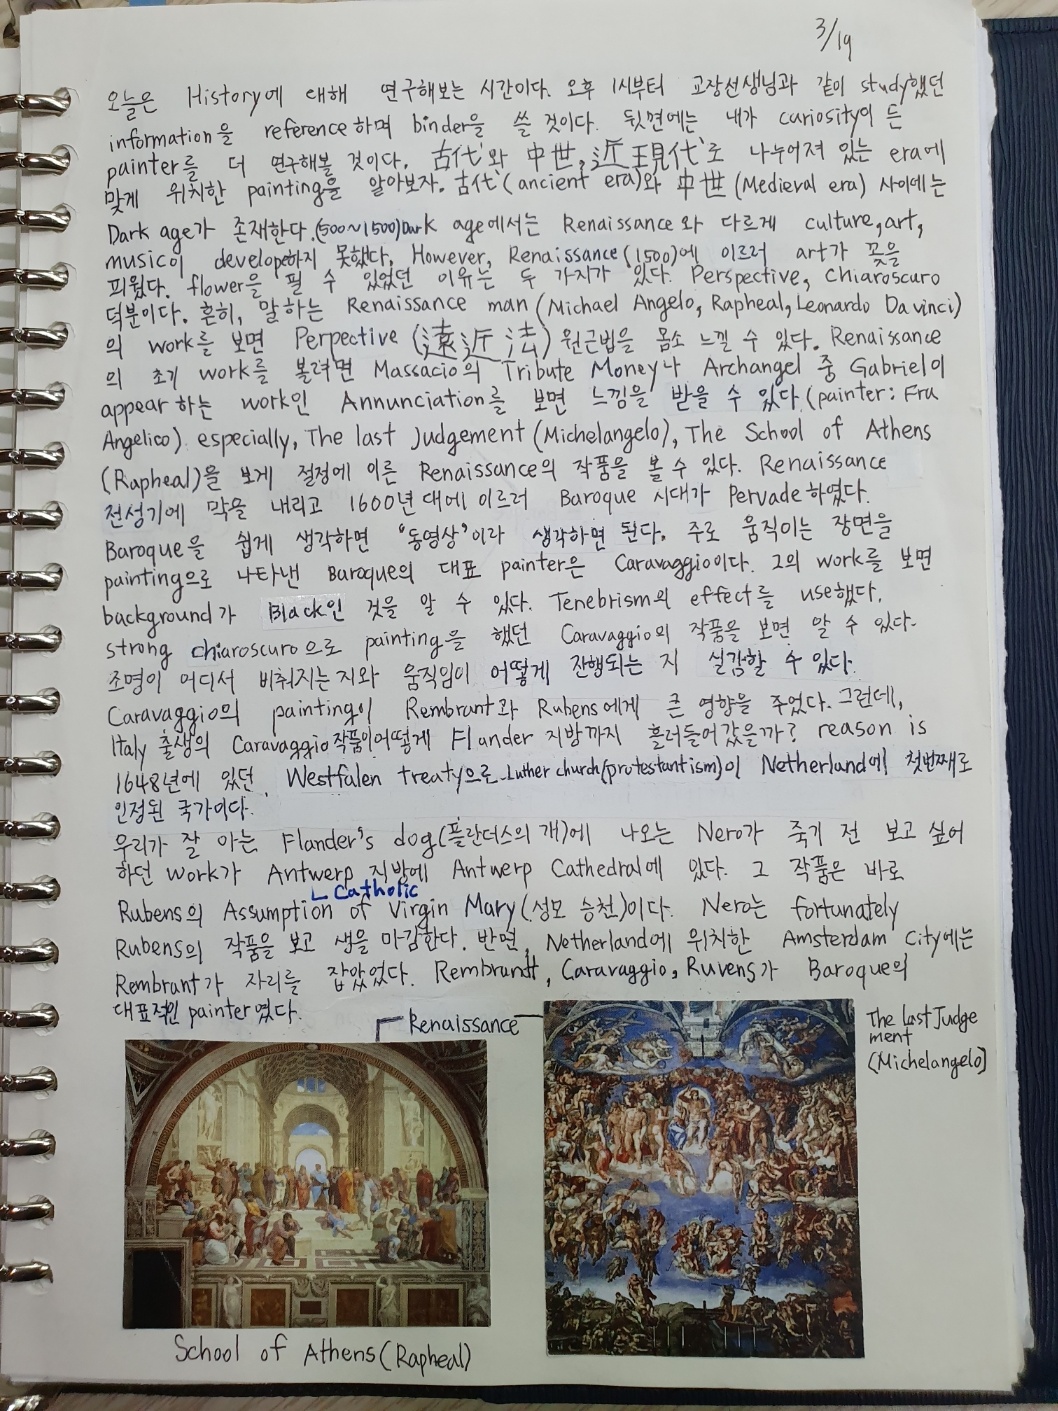 3/19
오늘은 History에 대해 연구해보는 시간이다. 오후 1시부터 교장선생님과 같이 study했던
information을 reference하며 binder을 쓸 것이다. 뒷면에는 내가 curiosity이 든
painter를 더 연구해볼 것이다. 古代와 中世, 近現代로 나누어져 있는 era에
맞게 위치한 painting을 알아보자. 古代(ancient era)와 中世(Medieval era) 사이에는
Dark age가 존재한다.(500~1500)Dark age에서는 Renaissance와 다르게 culture, art,
music이 develope하지 못했다. However, Renaissance(1500)에 이르러 art가 꽃을
피웠다. flower을 필 수 있었던 이유는 두 가지가 있다. Perspective, chiaroscuro
덕분이다. 흔히, 말하는 Renaissance man(Michael Angelo, Rapheal, Leonardo Da vinci)
의 work를 보면 Perpective(遠近法) 원근법을 몸소 느낄 수 있다. Renaissance
의 초기 work를 볼려면 Massacio의 Tribute Money나 Archangel 중 Gabriel이
appear하는 work인 Annunciation를 보면 느낌을 받을 수 있다.(painter: Fra
Angelico) especially, The last Judgement(Michelangelo), The School of Athens
(Rapheal)을 보게 절정에 이른 Renaissance의 작품을 볼 수 있다. Renaissance
전성기에 막을 내리고 1600년대에 이르러 Baroque 시대가 Pervade하였다.
Baroque을 쉽게 생각하면 '동영상'이라 생각하면 된다. 주로 움직이는 장면을
painting으로 나타낸 Baroque의 대표 painter은 Caravaggio이다. 그의 work를 보면
background가 Black인 것을 알 수 있다. Tenebrism의 effect를 use했다.
strong chiaroscuro으로 painting을 했던 Caravaggio의 작품을 보면 알 수 있다.
조명이 어디서 비춰지는지와 움직임이 어떻게 진행되는 지 실감할 수 있다.
Caravaggio의 painting이 Rembrant과 Rubens에게 큰 영향을 주었다. 그런데,
Italy 출생의 Caravaggio작품이어떻게 Flander 지방까지 흘러들어갔을까? reason is
1648년에 있던 Westfalen treaty으로 Luther church(protestantism)이 Netherland에 첫번째로
인정된 국가이다.
우리가 잘 아는 Flander's dog(플란더스의 개)에 나오는 Nero가 죽기 전 보고 싶어
하던 work가 Antwerp 지방에 Antwerp Cathedral에 있다. 그 작품은 바로
Catholic
Rubens의 Assumption of Virgin Mary(성모 승천)이다. Nero는 fortunately
Rubens의 작품을 보고 생을 마감한다. 반면, Netherland에 위치한 Amsterdam City에는
Rembrant가 자리를 잡았었다. Rembrandt, Caravaggio, Ruvens가 Baroque의
대표적인 painter였다.
Renaissance
The last Judge
ment
(Michelangelo)
School of Athens(Rapheal)